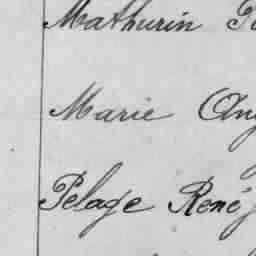 Mathurin
Marie
Pelage René